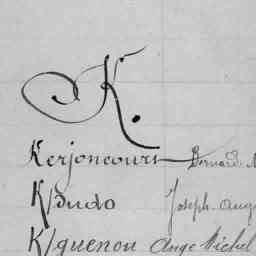 K.
Kerjoncours Bernard
K/dudo Joseph-Augu
K/guenou Ange Michel